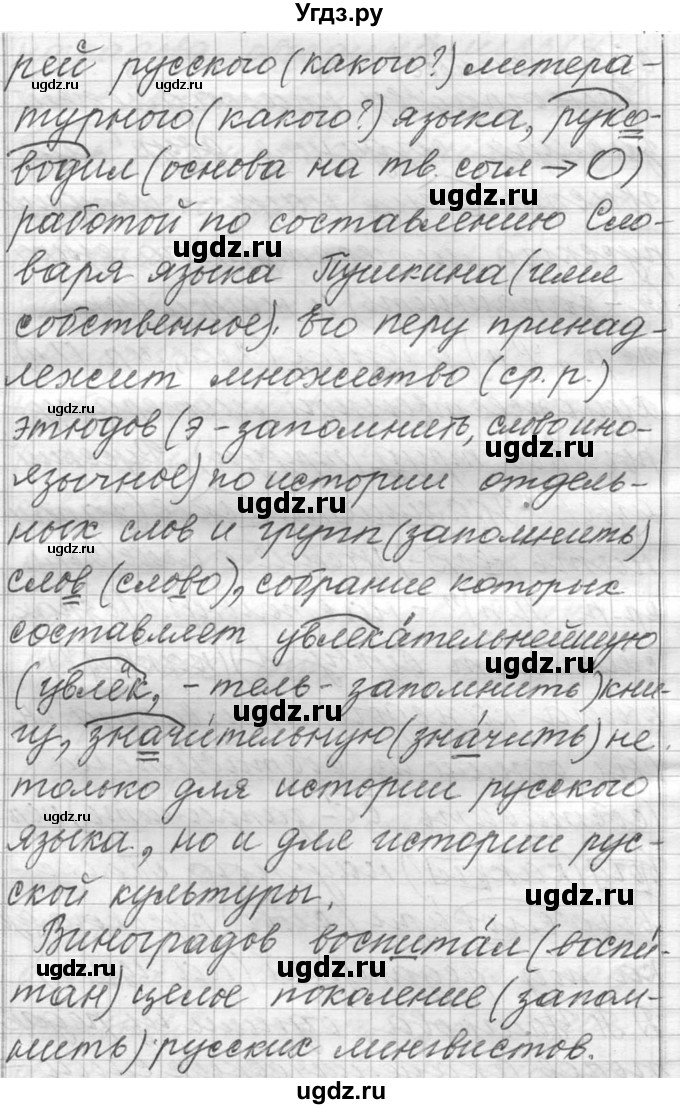 Угдз.ру
рей русского (какого?) литера-
турного (какого?) языка, руко-
водил (основа на тв. согл → О)
работой по составлению Сло-
варя языка Пушкина (имя
собственное). Его перу принад-
лежит множество (ср.р.)
этюдов (э - запомнить, слово ино-
язычное) по истории отдель-
ных слов и групп (запомнить)
слов (слово), собрание которых
составляет увлека́тельнейшую
(увлёк, - тель - запомнить) кни-
гу, значи́тельную (зна́чить) не
только для истории русского
языка, но и для истории рус-
ской культуры.
Виноградов воспита́л (воспи́-
тан) целое поколение (запом-
нить) русских лингвистов.
ugdz.ru